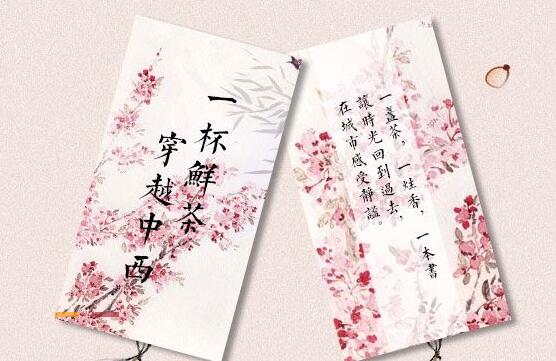 一杯鮮茶
穿越中西
一盞茶，一炷香，一本書
讓時光回到過去，
在城市感受靜謐。